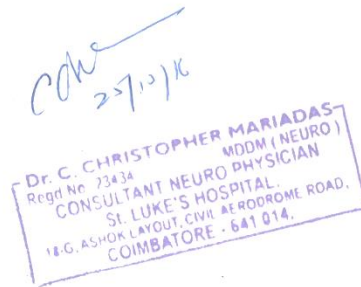 25/10/16
Dr. C. CHRISTOPHER MARIADAS
Regd No 73434 MDDM (NEURO)
CONSULTANT NEURO PHYSICIAN
St. LUKE'S HOSPITAL.
18-G, ASHOK LAYOUT, CIVIL AERODROME ROAD,
COIMBATORE - 641 014.